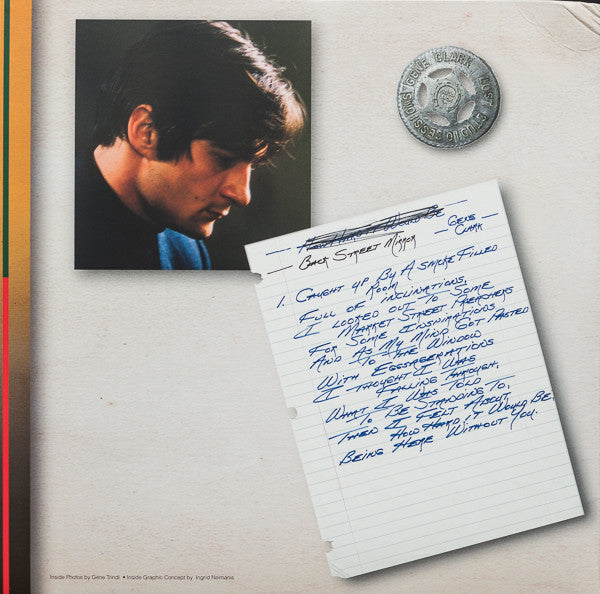 GENE CLARK LOST STUDIO SESSIONS
— How Hard It Would Be —
— BACK STREET MIRROR — GENE CLARK
1. CAUGHT UP BY A SMOKE FILLED
ROOM
FULL OF INCLINATIONS,
I LOOKED OUT TO SOME
MARKET STREET PREACHERS
FOR SOME INSPIRATIONS
AND AS MY MIND GOT PASTED
TO THE WINDOW
WITH EGGSAGERATIONS
I THOUGHT I WAS
FALLING THROUGH,
WHAT I WAS TOLD
TO BE STANDING TO,
THEN I FELT ABOUT,
HOW HARD IT WOULD BE
BEING HERE WITHOUT YOU.
Inside Photos by Gene Trindl • Inside Graphic Concept by Ingrid Neimanis